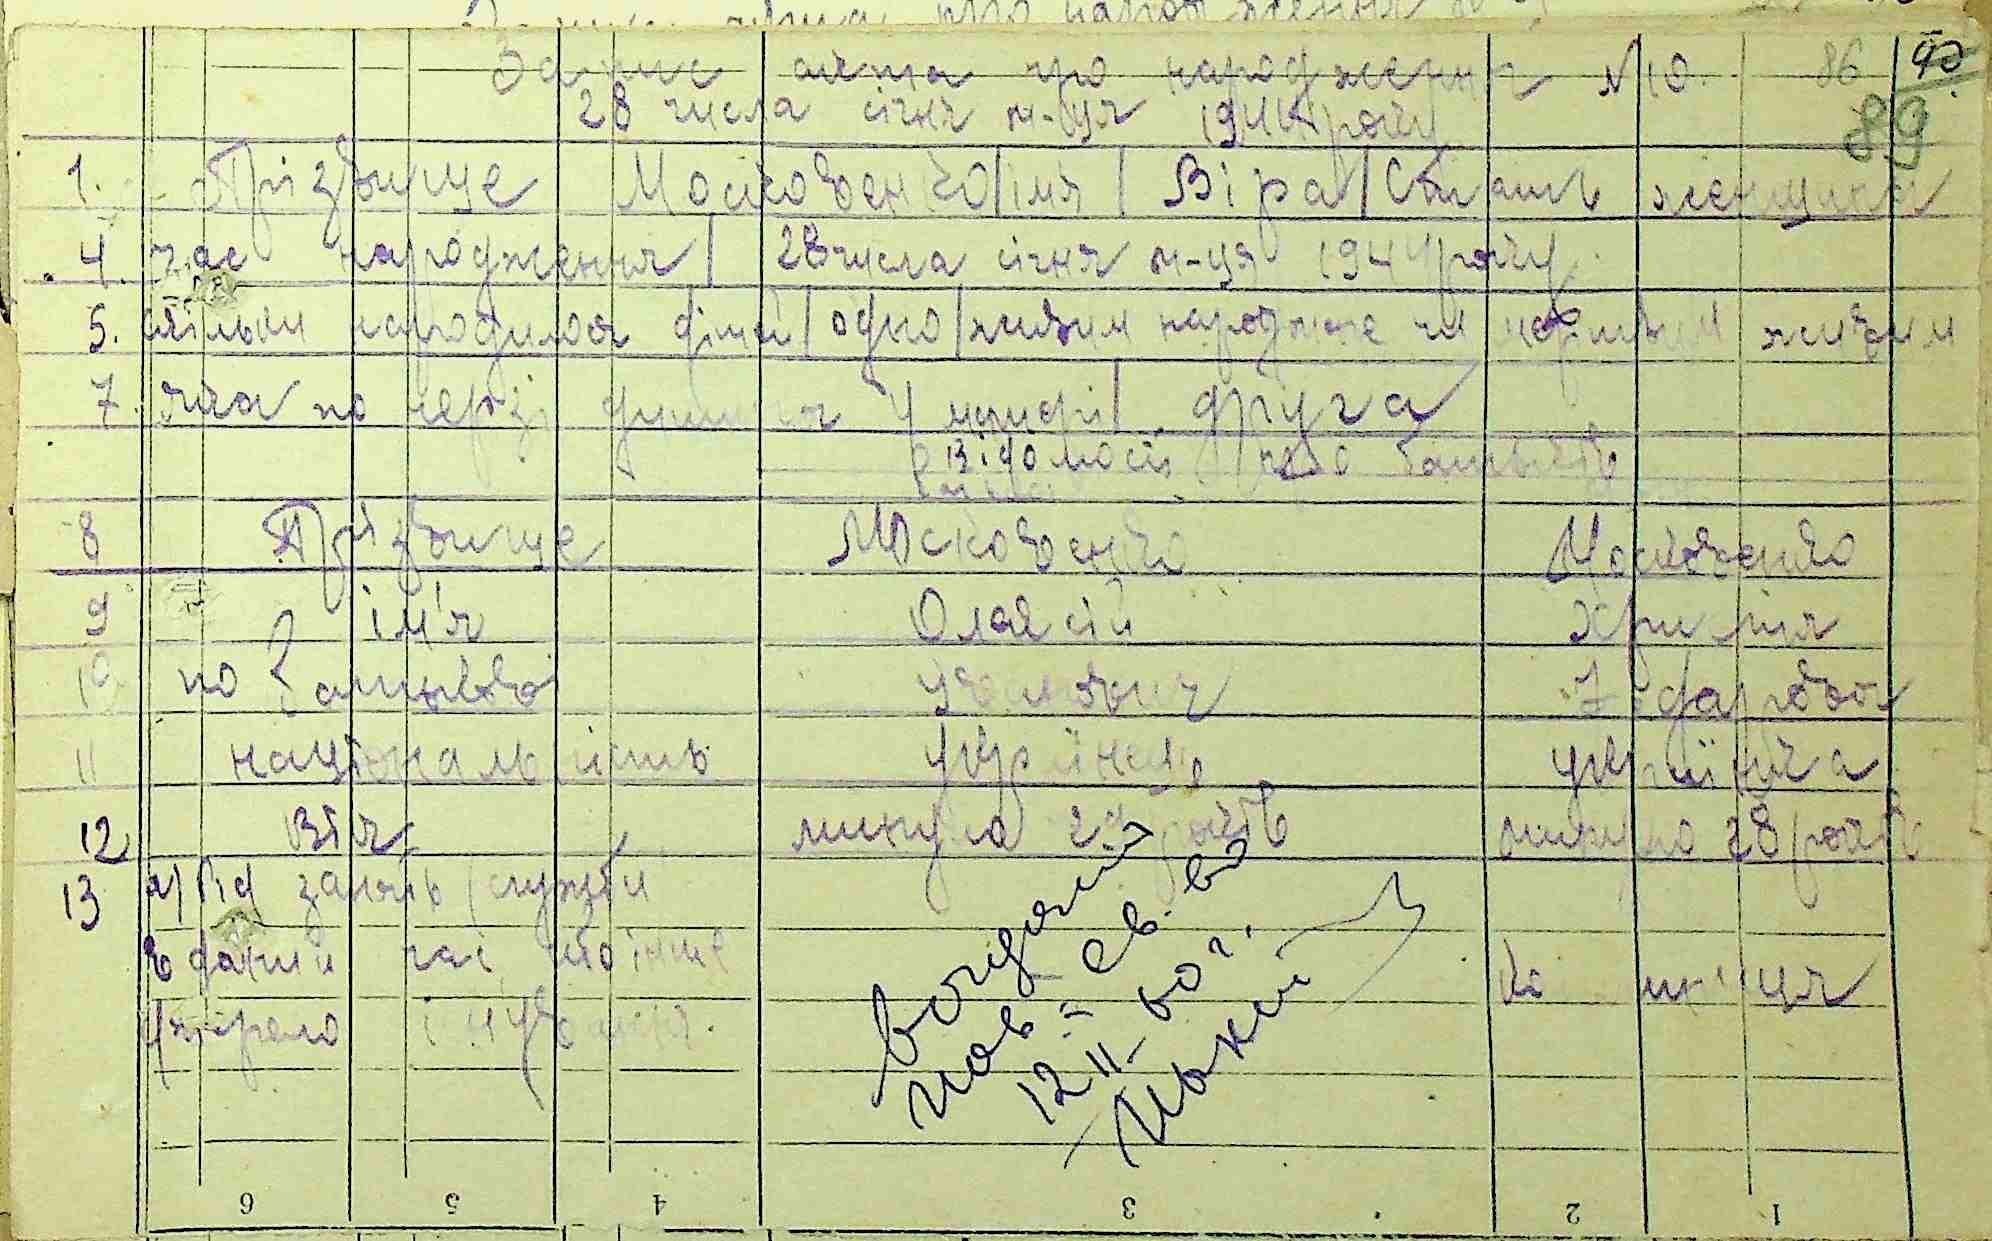 Запис акта про народження №10. 86 90
28 числа січня м-ця 1944 року 89
1. Прізвище Московенко/імя/ Віра/Стать женщина
4. час народження/ 28 числа січня м-ця 1944 року
5. скільки народилося дітей/одно/живим народжене чи мертвим живим
7. яка по черзі дитина у матері/ друга
Відомості про батьків
8 Прізвище Московенко Московенко
9 ім'я Олексій
10 по батькові
11 національність українець українка
12 Вік минуло років минуло 28 років
13 а) Рід занять служби
в даний час або інше
джерело існування.
12 II-
6 5 4 3 2 1